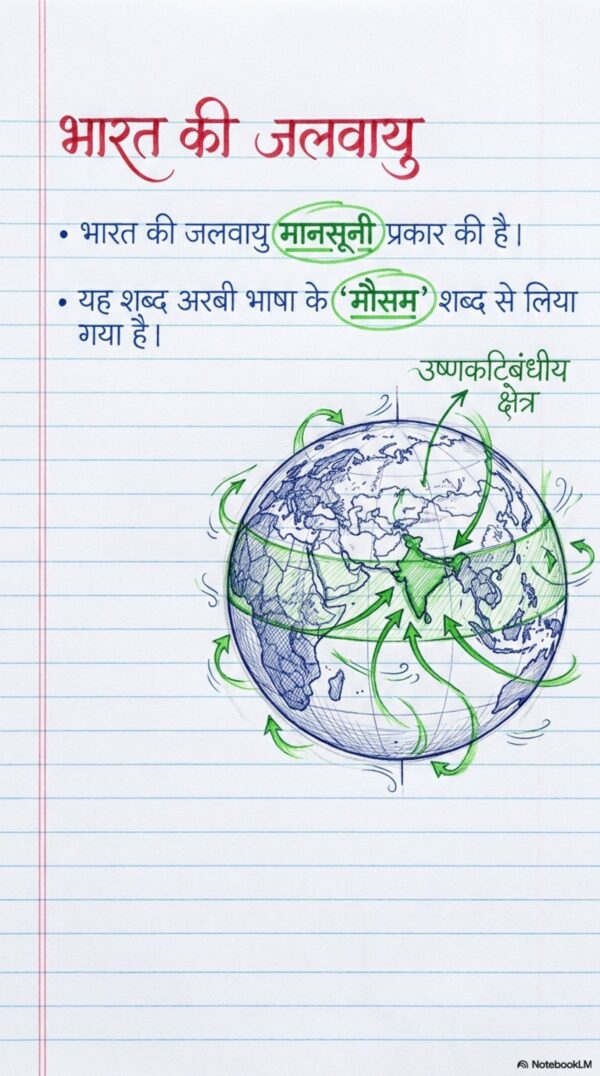 भारत की जलवायु
• भारत की जलवायु मानसूनी प्रकार की है।
• यह शब्द अरबी भाषा के ‘मौसम’ शब्द से लिया
गया है।
उष्णकटिबंधीय
क्षेत्र
NotebookLM